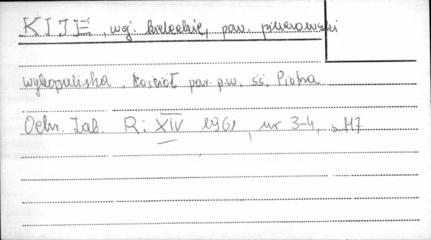 KIJE, woj. kieleckie, pow. pińczowski
wykopaliska, kościół par. p.w. śś. Piotra
Ochr. Zab. R: XIV 1961, nr 3-4, s. 117